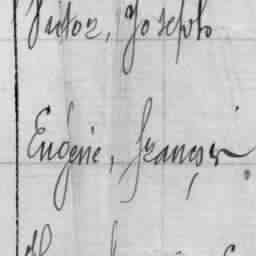 Victor, Joseph
Eugène, François